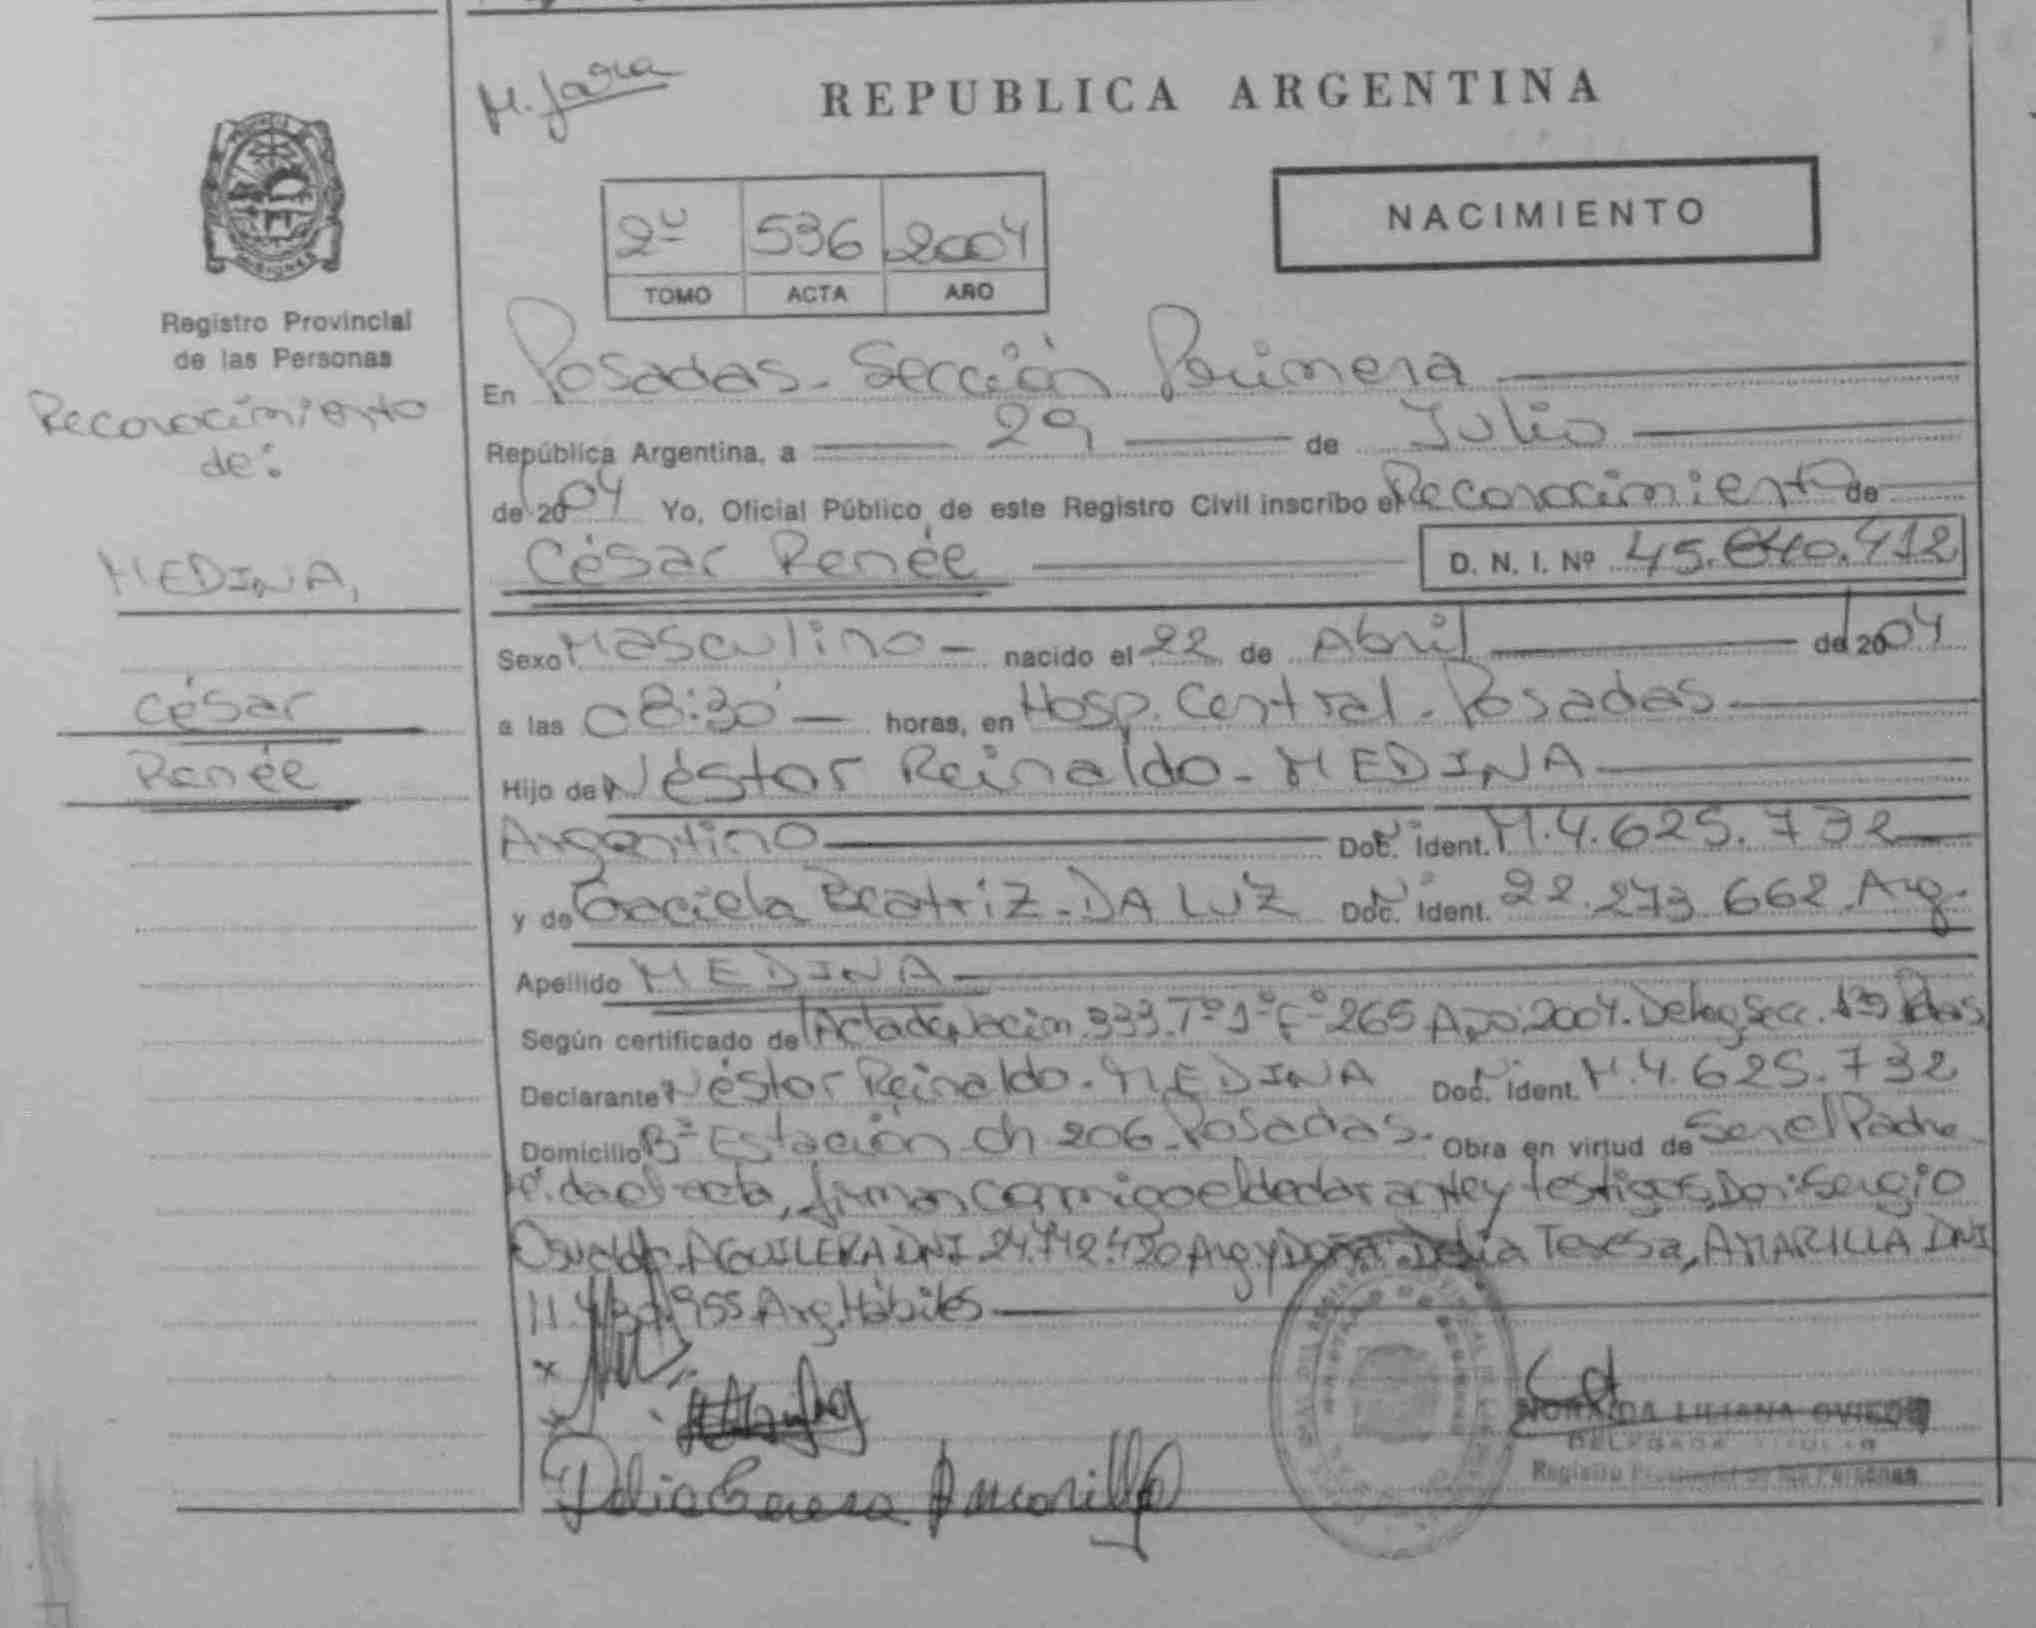 M. Jagua
REPUBLICA ARGENTINA
NACIMIENTO
2º 536 2004
TOMO ACTA AÑO
PROVINCIA
MISIONES
Registro Provincial
de las Personas
Reconocimiento
de:
MEDINA,
César
Renée
En Posadas - Sección Primera
República Argentina, a 29 de Julio
de 2004 Yo, Oficial Público de este Registro Civil inscribo el Reconocimiento de
César Renée D. N. I. Nº 45.040.412
Sexo Masculino - nacido el 22 de Abril de 2004
a las 08:30 - horas, en Hosp. Central - Posadas
Hijo de Néstor Reinaldo - MEDINA
Argentino Doc. Ident. M.4.625.732
y de Graciela Beatriz - DA LUZ Doc. Ident. 22.273.662 Arg.
Apellido MEDINA
Según certificado de Acta de Nacim. 333. Tº 1º Fº 265 Año 2004. Deleg Secc. 1ª Pdas
Declarante Néstor Reinaldo - MEDINA Doc. Ident. M.4.625.732
Domicilio Bº Estación Ch 206 - Posadas. Obra en virtud de Ser el Padre
el acta, firman conmigo el declarante y testigos, Don: Sergio
Osvaldo AGUILERA DNI 24.742.420 Arg y Doña: Delia Teresa, AMARILLA DNI
955 Arg. Hábiles
x
x
Delia Teresa Amarilla
NORAIDA LILIANA OVIEDO
DELEGADA TITULAR
Registro Provincial de las Personas